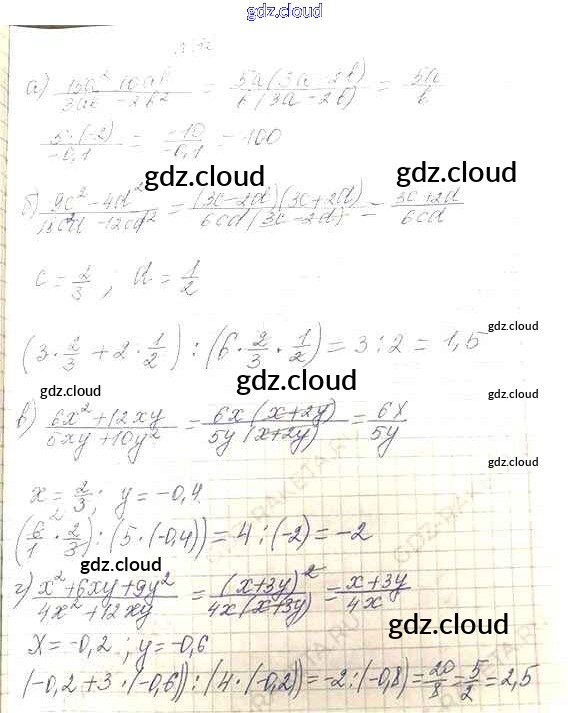 gdz.cloud
а) (15a² - 10ab)/(3ab - 2b²) = 5a(3a - 2b)/b(3a - 2b) = 5a/b
5·(-2)/-0,1 = -10/-0,1 = 100
gdz.cloud gdz.cloud
б) (9c² - 4d²)/(18c²d - 12cd²) = (3c - 2d)(3c + 2d)/6cd(3c - 2d) = (3c + 2d)/6cd
c = 2/3 ; d = 1/2
gdz.cloud
(3 · 2/3 + 2 · 1/2) : (6 · 2/3 · 1/2) = 3 : 2 = 1,5
gdz.cloud gdz.cloud gdz.cloud
в) (6x² + 12xy)/(5xy + 10y²) = 6x(x + 2y)/5y(x + 2y) = 6x/5y
gdz.cloud
x = 2/3 ; y = -0,4
(6/1 · 2/3) : (5 · (-0,4)) = 4 : (-2) = -2
gdz.cloud
г) (x² + 6xy + 9y²)/(4x² + 12xy) = (x + 3y)²/4x(x + 3y) = (x + 3y)/4x
gdz.cloud
x = -0,2 ; y = -0,6
(-0,2 + 3 · (-0,6)) : (4 · (-0,2)) = -2 : (-0,8) = 20/8 = 5/2 = 2,5